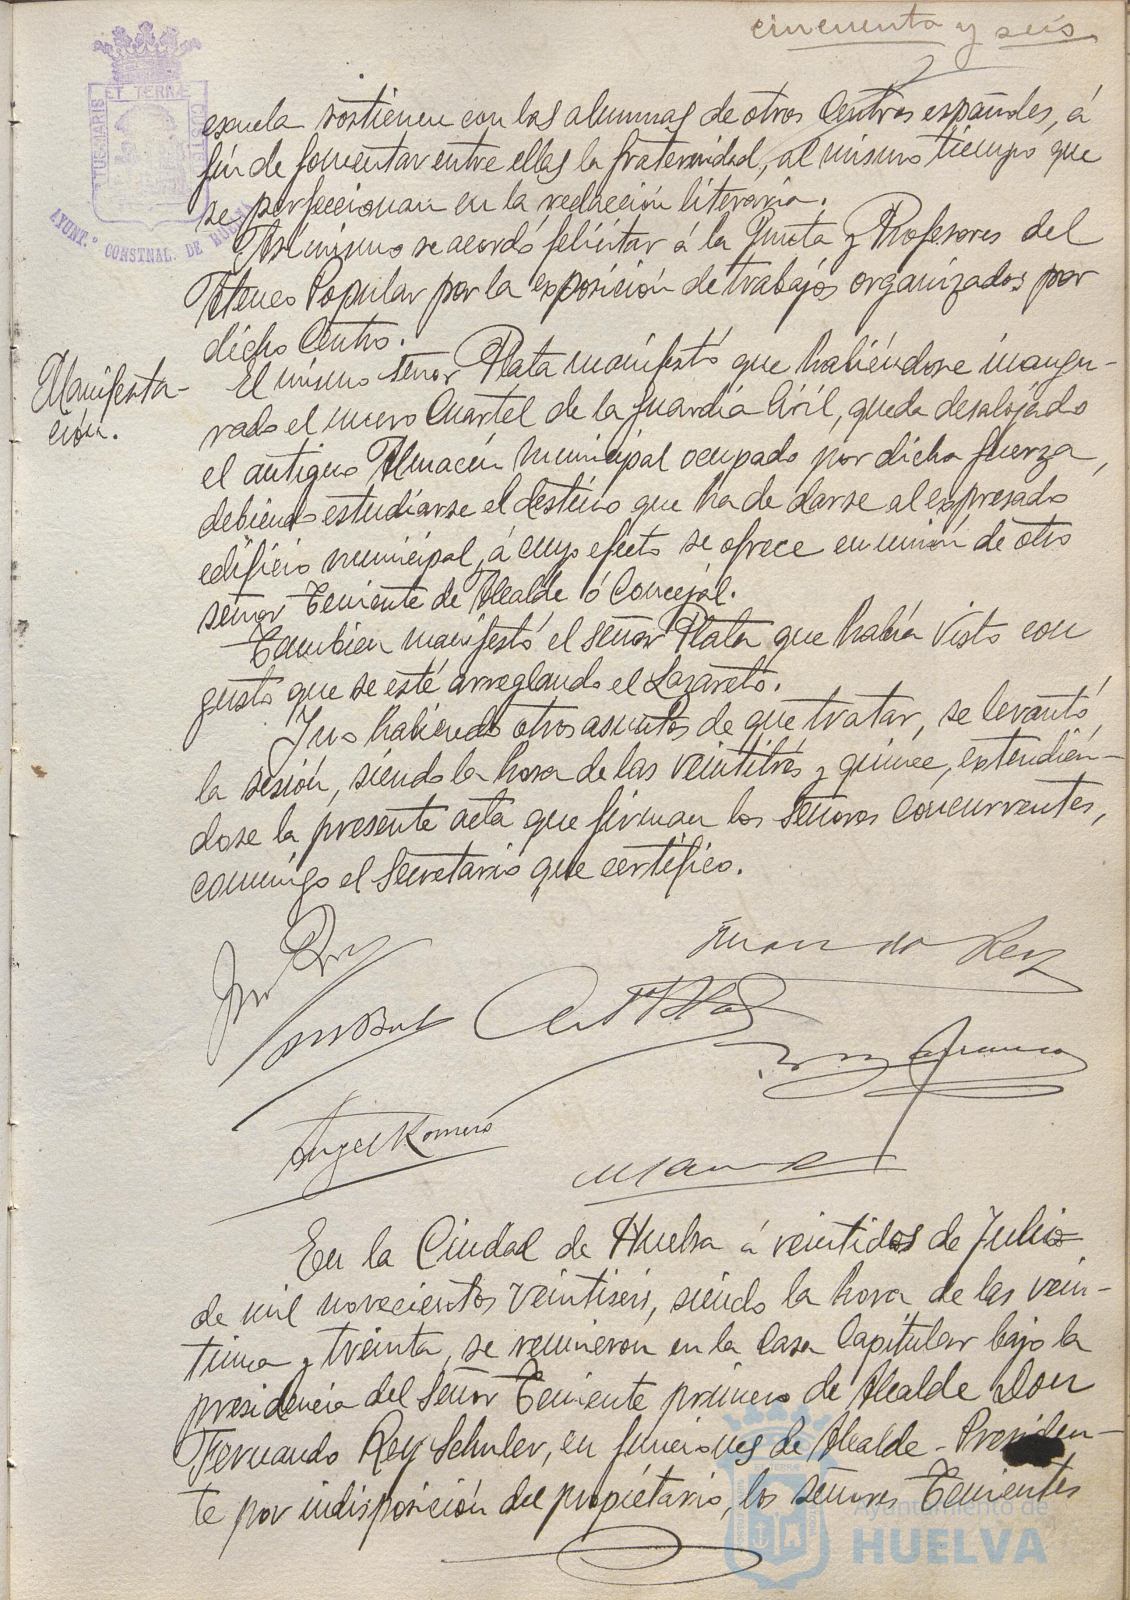 cincuenta y seis
ET TERRÆ
AYUNT.º CONSTNAL. DE HUELVA
escuela sostienen con las alumnas de otros Centros españoles, á
fin de fomentar entre ellas la fraternidad, al mismo tiempo que
se perfeccionan en la redacción literaria.
Asimismo se acordó felicitar á la Junta y Profesores del
Ateneo Popular por la exposición de trabajos organizados por
dicho Centro.
Manifesta-
ción.
El mismo señor Plata manifestó que habiéndose inaugu-
rado el nuevo Cuartel de la Guardia Civil, queda desalojado
el antiguo Almacén municipal ocupado por dicha fuerza,
debiendo estudiarse el destino que ha de darse al expresado
edificio municipal, á cuyo efecto se ofrece en unión de otro
señor Teniente de Alcalde ó Concejal.
Tambien manifestó el señor Plata que había visto con
gusto que se esté arreglando el Lazareto.
Y no habiendo otros asuntos de que tratar, se levantó
la sesión, siendo la hora de las veintitrés y quince, extendién-
dose la presente acta que firman los señores concurrentes,
conmigo el Secretario que certifico.
Fernando Rey
Ant Plata
Angel Romero
En la Ciudad de Huelva á veintidos de Julio
de mil novecientos veintiseis, siendo la hora de las vein-
tiuna y treinta, se reunieron en la Casa Capitular bajo la
presidencia del Señor Teniente primero de Alcalde Don
Fernando Rey Schuler, en funciones de Alcalde-Presiden-
te por indisposición del propietario, los señores Tenientes
Ayuntamiento de
HUELVA